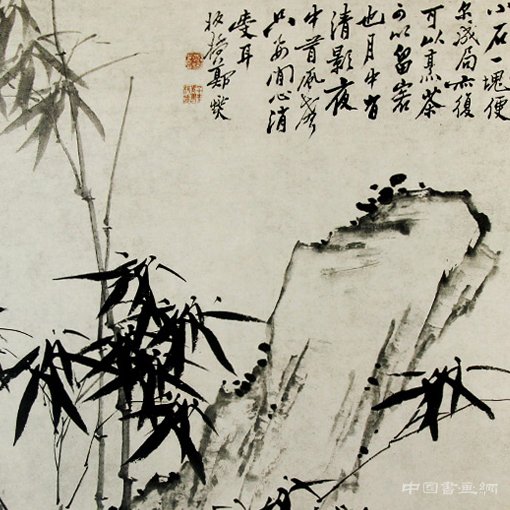 小石一塊便
尔成局亦復
可以烹茶
可以留客
也月中有
清影夜
中有風聲
只要閒心消
受耳
板橋鄭燮
中國書画網